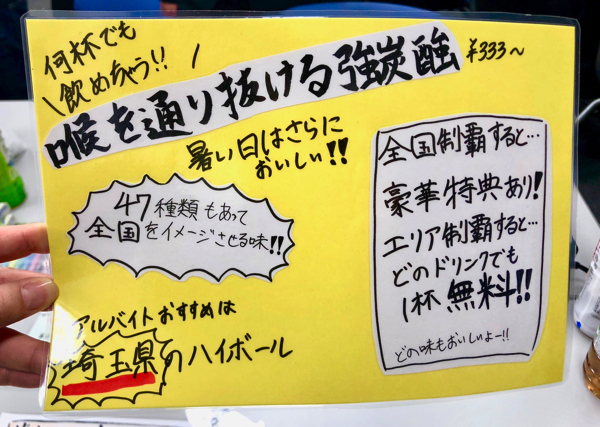 何杯でも
飲めちゃう!!
喉を通り抜ける強炭酸 ¥333～
暑い日はさらに
おいしい!!
47種類もあって
全国をイメージさせる味!!
アルバイトおすすめは
埼玉県のハイボール
全国制覇すると…
豪華特典あり!
エリア制覇すると…
どのドリンクでも
1杯無料!!
どの味もおいしいよー!!